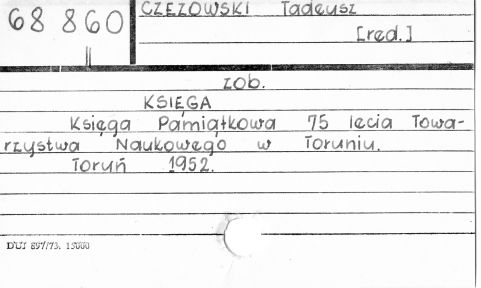 68 860
CZEŻOWSKI Tadeusz
[red.]
zob.
KSIĘGA
Księga Pamiątkowa 75 lecia Towa-
rzystwa Naukowego w Toruniu.
Toruń 1952.
DUJ 897/73. 15000